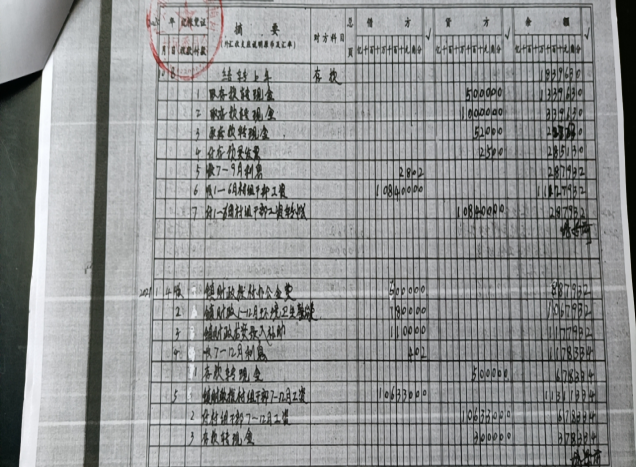 年 记帐凭证 摘要 对方科目 总页 借方 √ 贷方 √ 余额 √
月 日 收款 付款 亿千百十万千百十元角分 亿千百十万千百十元角分 亿千百十万千百十元角分
结转上年 存款 1839630
1 取存款转现金 500000 1339630
2 取存款转现金 1000000 339630
3 取存款转现金 52000
4 2500 285130
5 收7-9月利息 2802 287932
6 收1-6月村组干部工资 10840000 11127932
7 付1-6月村组干部工资 10840000 287932
2021 镇财政拨村办公金费 600000 887932
2 镇财政1-12月环境卫生 180000 1067932
3 镇财政 110000 1177932
4 收7-12月利息 402 1178334
1 存款转现金 500000 678334
5 镇财政拨村组干部7-12月工资 10633000 11311334
2 付村组干部7-12月工资 10633000 678334
3 存款转现金 300000 378334